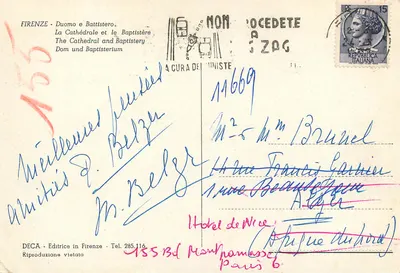 FIRENZE - Duomo e Battistero.
La Cathédrale et le Baptistère
The Cathedral and Baptistery
Dom und Baptisterium
NON PROCEDETE
A
ZIG ZAG
A CURA DEL MINISTE
15
155
11669
Meilleures pensées
Amitiés P. Belzer
M. Belzer
Mr & Mme Brunel
14 rue Francis Garnier
1 rue
Alger
(Afrique du Nord)
Hotel de Nice
155 Bd Montparnasse
Paris 6
DECA - Editrice in Firenze - Tel. 285.116
Riproduzione vietata